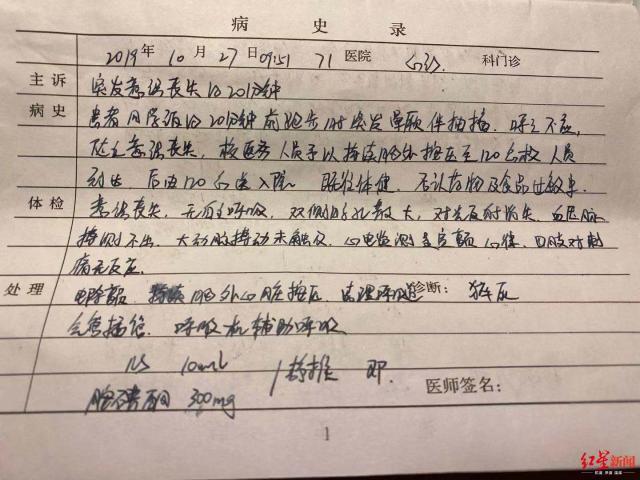 病 史 录
2019年 10月 27日 09:51 71医院 科门诊
主诉 突发意识丧失约20分钟
病史 患者同学诉约20分钟前跑步时突发晕厥伴抽搐，呼之不应，
随之意识丧失，校医务人员予以持续胸外按压至120急救人员
到达，后由120急送入院，既往体健，否认药物及食品过敏史。
体检 意识丧失，无自主呼吸，双侧瞳孔散大，对光反射消失，血压脉
搏测不出，大动脉搏动未触及，心电监测呈室颤心律，四肢对刺
痛无反应。
处理 电除颤 持续胸外心脏按压 清理呼吸道 诊断： 猝死
气管插管 呼吸机辅助呼吸
NS 10ml
静推 即
胺碘酮 300mg
医师签名：
1
红星新闻